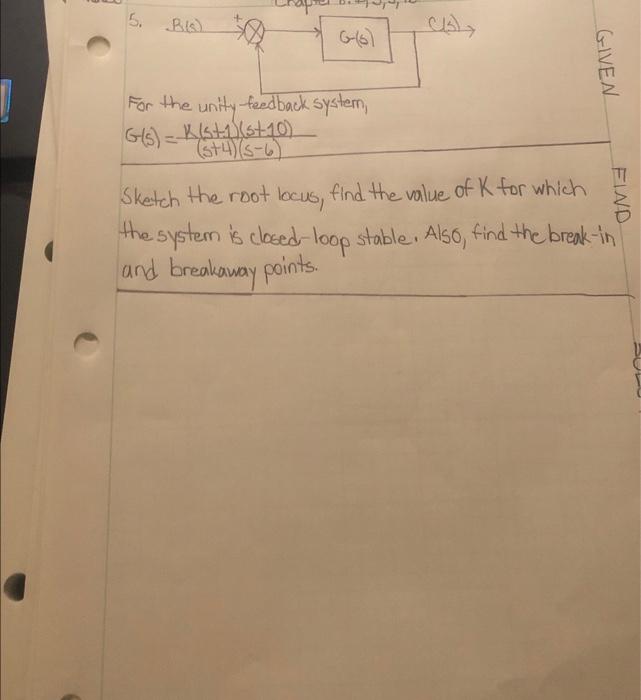 5. R(s) + G(s) C(s)
For the unity-feedback system,
G(s) = K(s+1)(s+10)
(s+4)(s-6)
Sketch the root locus, find the value of K for which
the system is closed-loop stable. Also, find the break-in
and breakaway points.
GIVEN
FIND